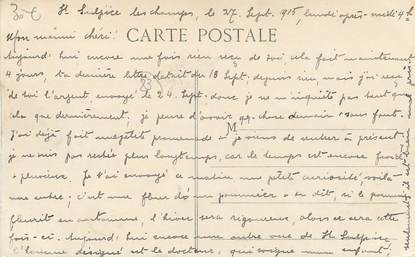 St Sulpice les champs, le 27 Sept. 1915, lundi après-midi 4 h
Mon mimi chéri.
CARTE POSTALE
Aujourd'hui encore une fois rien reçu de toi, cela fait maintenant
4 jours, ta dernière lettre datait du 18 Sept. depuis rien, mais j'ai reçu
de toi l'argent envoyé le 24 Sept. donc je ne m'inquiète pas tant que
que dernièrement; je pense d'avoir qq. chose demain sans faute.
J'ai déjà fait une petite promenade je viens de rentrer à présent.
je ne suis pas restée plus longtemps, car le temps est encore froid
pluvieux. Je t'ai envoyé ce matin une petite curiosité, voilà
une autre; c'est une fleur d'un pommier on dit, si le pommier
fleurit en automne, l'hiver sera rigoureux, alors ce sera cette
fois-ci. Aujourd'hui encore une autre vue de St Sulpice
l'homme désigné est le docteur, qui soigne mon enfant,